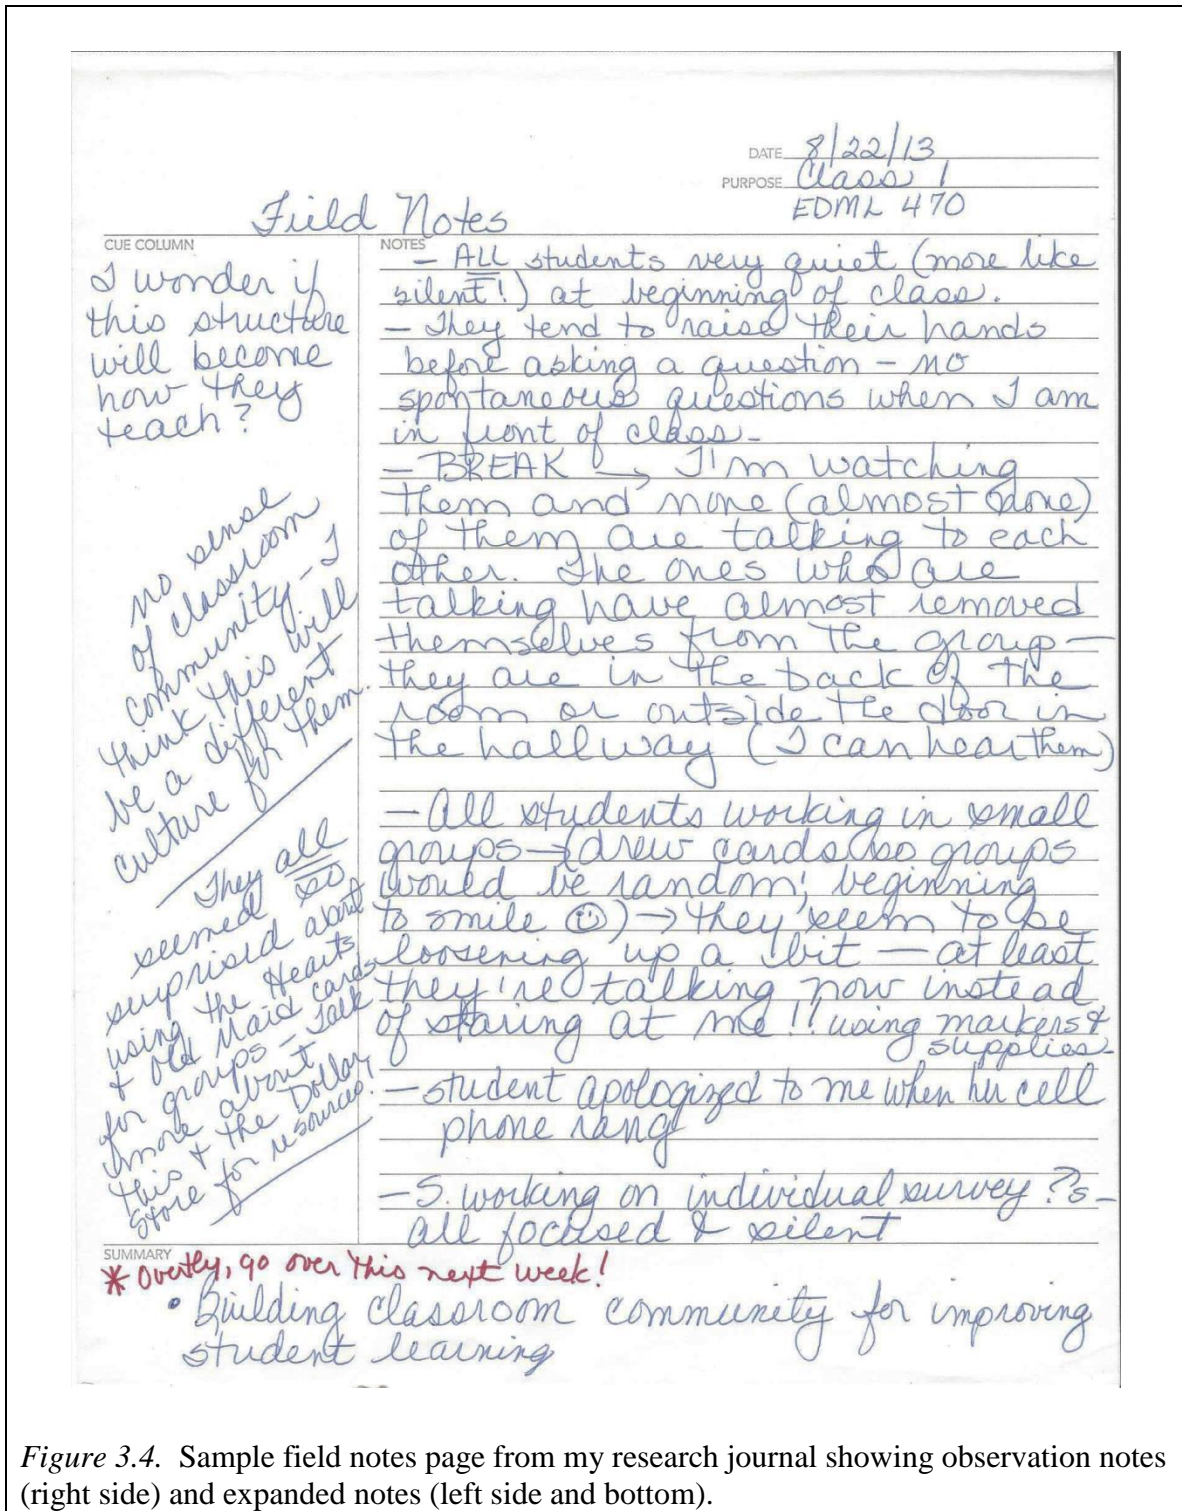 DATE 8/22/13
PURPOSE Class 1
EDML 470
Field Notes
CUE COLUMN
I wonder if
this structure
will become
how they
teach?
no sense
of classroom
community - I
think this will
be a different
culture for them.
They all
seemed so
surprised about
using the Hearts
& Old Maid cards
for groups - Talk
more about
this & the Dollar
Store for resources!
NOTES
- ALL students very quiet (more like
silent!) at beginning of class.
- They tend to raise their hands
before asking a question - no
spontaneous questions when I am
in front of class -
- BREAK → I'm watching
them and none (almost none)
of them are talking to each
other. The ones who are
talking have almost removed
themselves from the group -
they are in the back of the
room or outside the door in
the hallway (I can hear them)
- All students working in small
groups → (drew cards so groups
would be random; beginning
to smile ☺) → they seem to be
loosening up a bit - at least
they're talking now instead
of staring at me!! using markers &
supplies -
- student apologized to me when her cell
phone rang
- S. working on individual survey ?s -
all focused & silent
SUMMARY
* Overtly, go over this next week!
• Building classroom community for improving
student learning
Figure 3.4. Sample field notes page from my research journal showing observation notes
(right side) and expanded notes (left side and bottom).